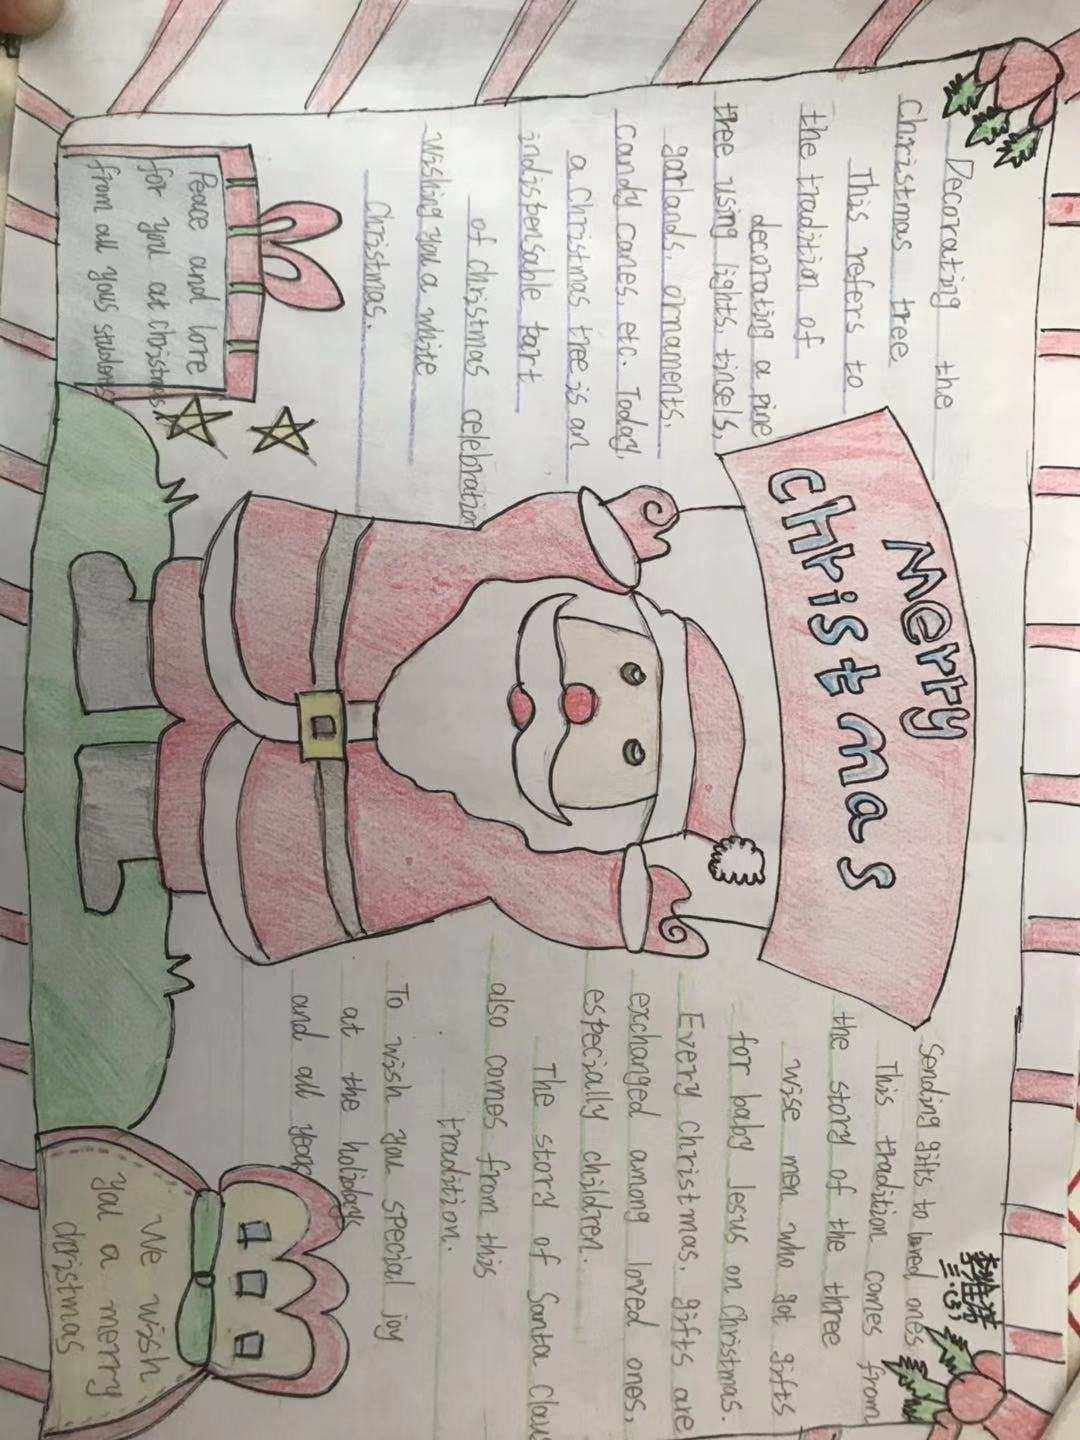 Merry
christmas
Decorating the
christmas tree
This refers to
the tradition of
decorating a pine
tree using lights, tinsels,
garlands, ornaments,
candy canes, etc. Today,
a Christmas tree is an
indispensable tart
of christmas celebration
Wishing you a white
Christmas.
Peace and lore
for you at christmas
from all yous students
三(3)
Sending gifts to loved ones
This tradition comes from
the story of the three
wise men who got gifts
for baby Jesus on Christmas.
Every Christmas, gifts are
exchanged among loved ones,
especially children.
The story of Santa Claus
also comes from this
tradition.
To wish you special joy
at the holidays
and all year
We wish
you a merry
christmas